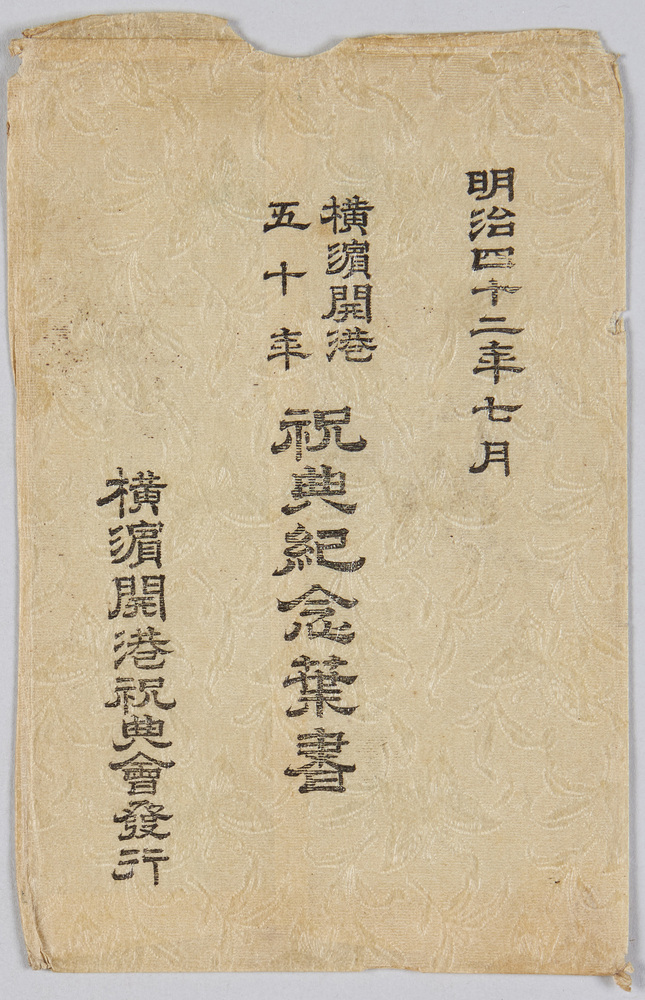 明治四十二年七月
横濵開港
五十年
祝典紀念葉書
横濵開港祝典會發行